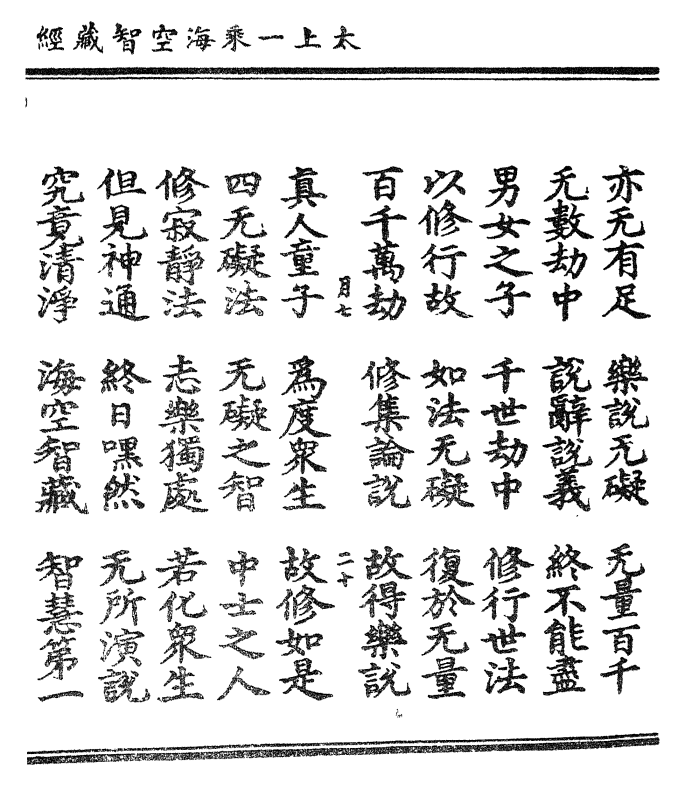 太上一乘海空智藏經
亦无有足 樂說无礙 无量百千
无數劫中 說辭說義 終不能盡
男女之子 千世劫中 修行世法
以修行故 如法无礙 復於无量
百千萬劫 修集論說 故得樂說
月七 二十
真人童子 爲度衆生 故修如是
四无礙法 无礙之智 中士之人
修寂靜法 志樂獨處 若化衆生
但見神通 終日嘿然 无所演說
究竟清淨 海空智藏 智慧第一